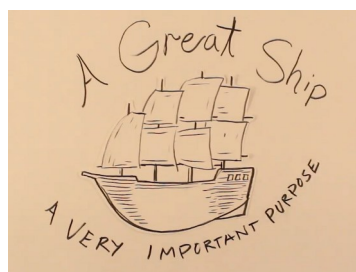 A Great Ship
A VERY IMPORTANT PURPOSE